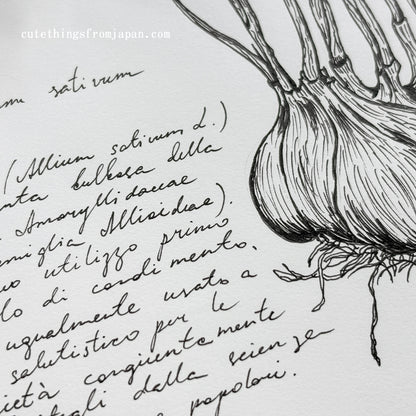 cutethingsfromjapan.com
sativum
(Allium sativum L.)
bulbosa della
Amaryllidaceae
Allioideae).
utilizzo primo
lo di condimento.
ugualmente usato a
salutistico per le
congiuntamente
dalla scienza
popolari.